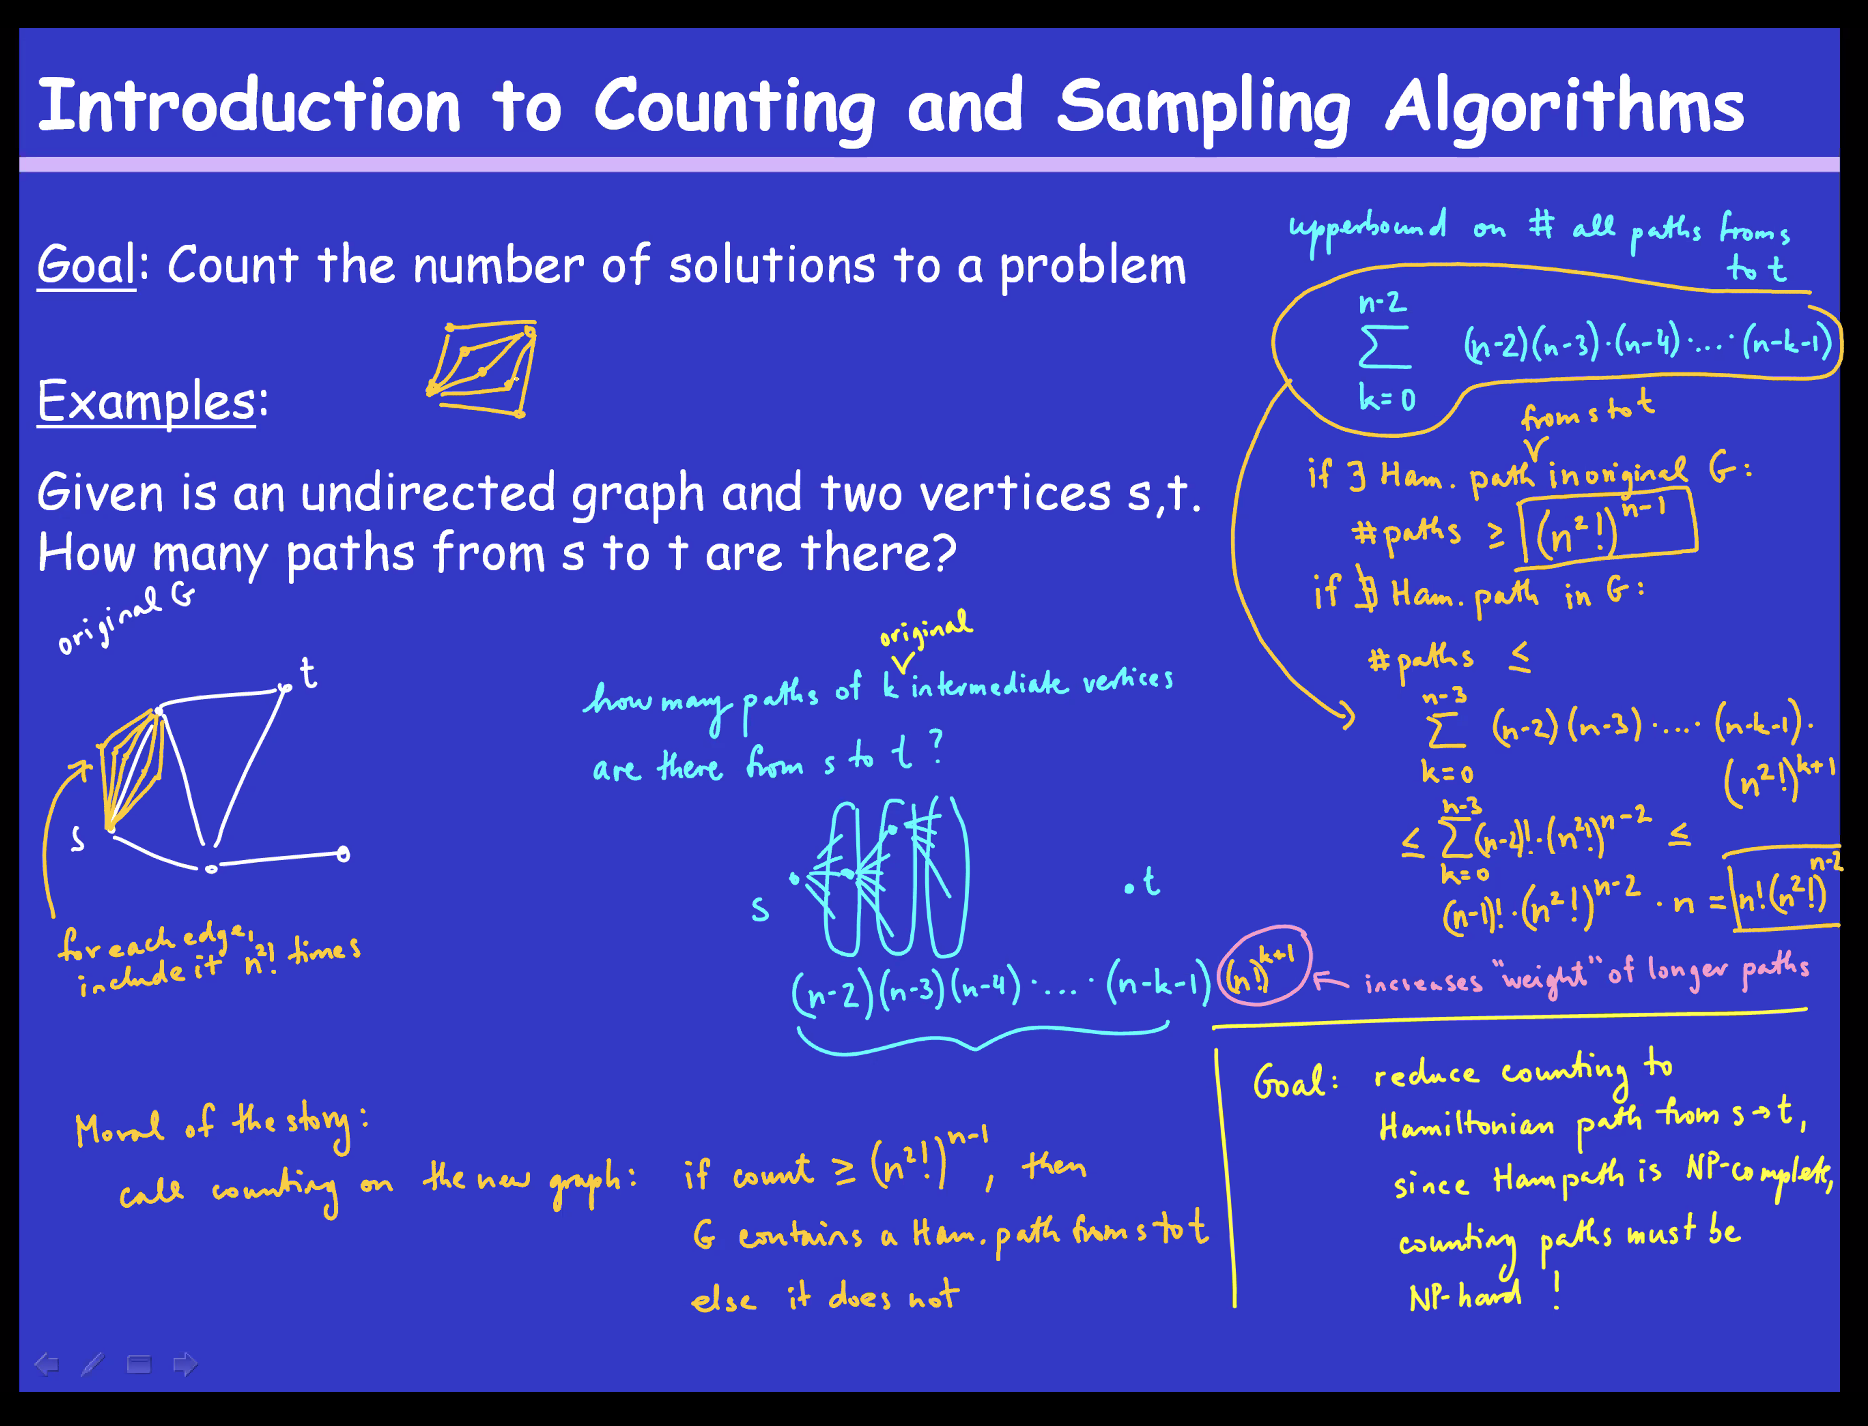 Introduction to Counting and Sampling Algorithms
Goal: Count the number of solutions to a problem
Examples:
Given is an undirected graph and two vertices s,t.
How many paths from s to t are there?
original G
t
s
for each edge,
include it n²! times
original
how many paths of k intermediate vertices
are there from s to t ?
s
t
(n-2)(n-3)(n-4)·....·(n-k-1) (n!)^{k+1}
increases "weight" of longer paths
upperbound on # all paths from s
to t
n-2
∑ (n-2)(n-3)·(n-4)·....·(n-k-1)
k=0
from s to t
if ∃ Ham. path in original G:
#paths ≥ (n²!)^{n-1}
if ∄ Ham. path in G:
#paths ≤
n-3
∑ (n-2)(n-3)·....·(n-k-1)·
k=0
(n²!)^{k+1}
n-3
≤ ∑ (n-2)!·(n²!)^{n-2} ≤
k=0
(n-1)!·(n²!)^{n-2}·n = n!(n²!)^{n-2}
Moral of the story:
call counting on the new graph: if count ≥ (n²!)^{n-1}, then
G contains a Ham. path from s to t
else it does not
Goal: reduce counting to
Hamiltonian path from s→t,
since Ham path is NP-complete,
counting paths must be
NP-hard !